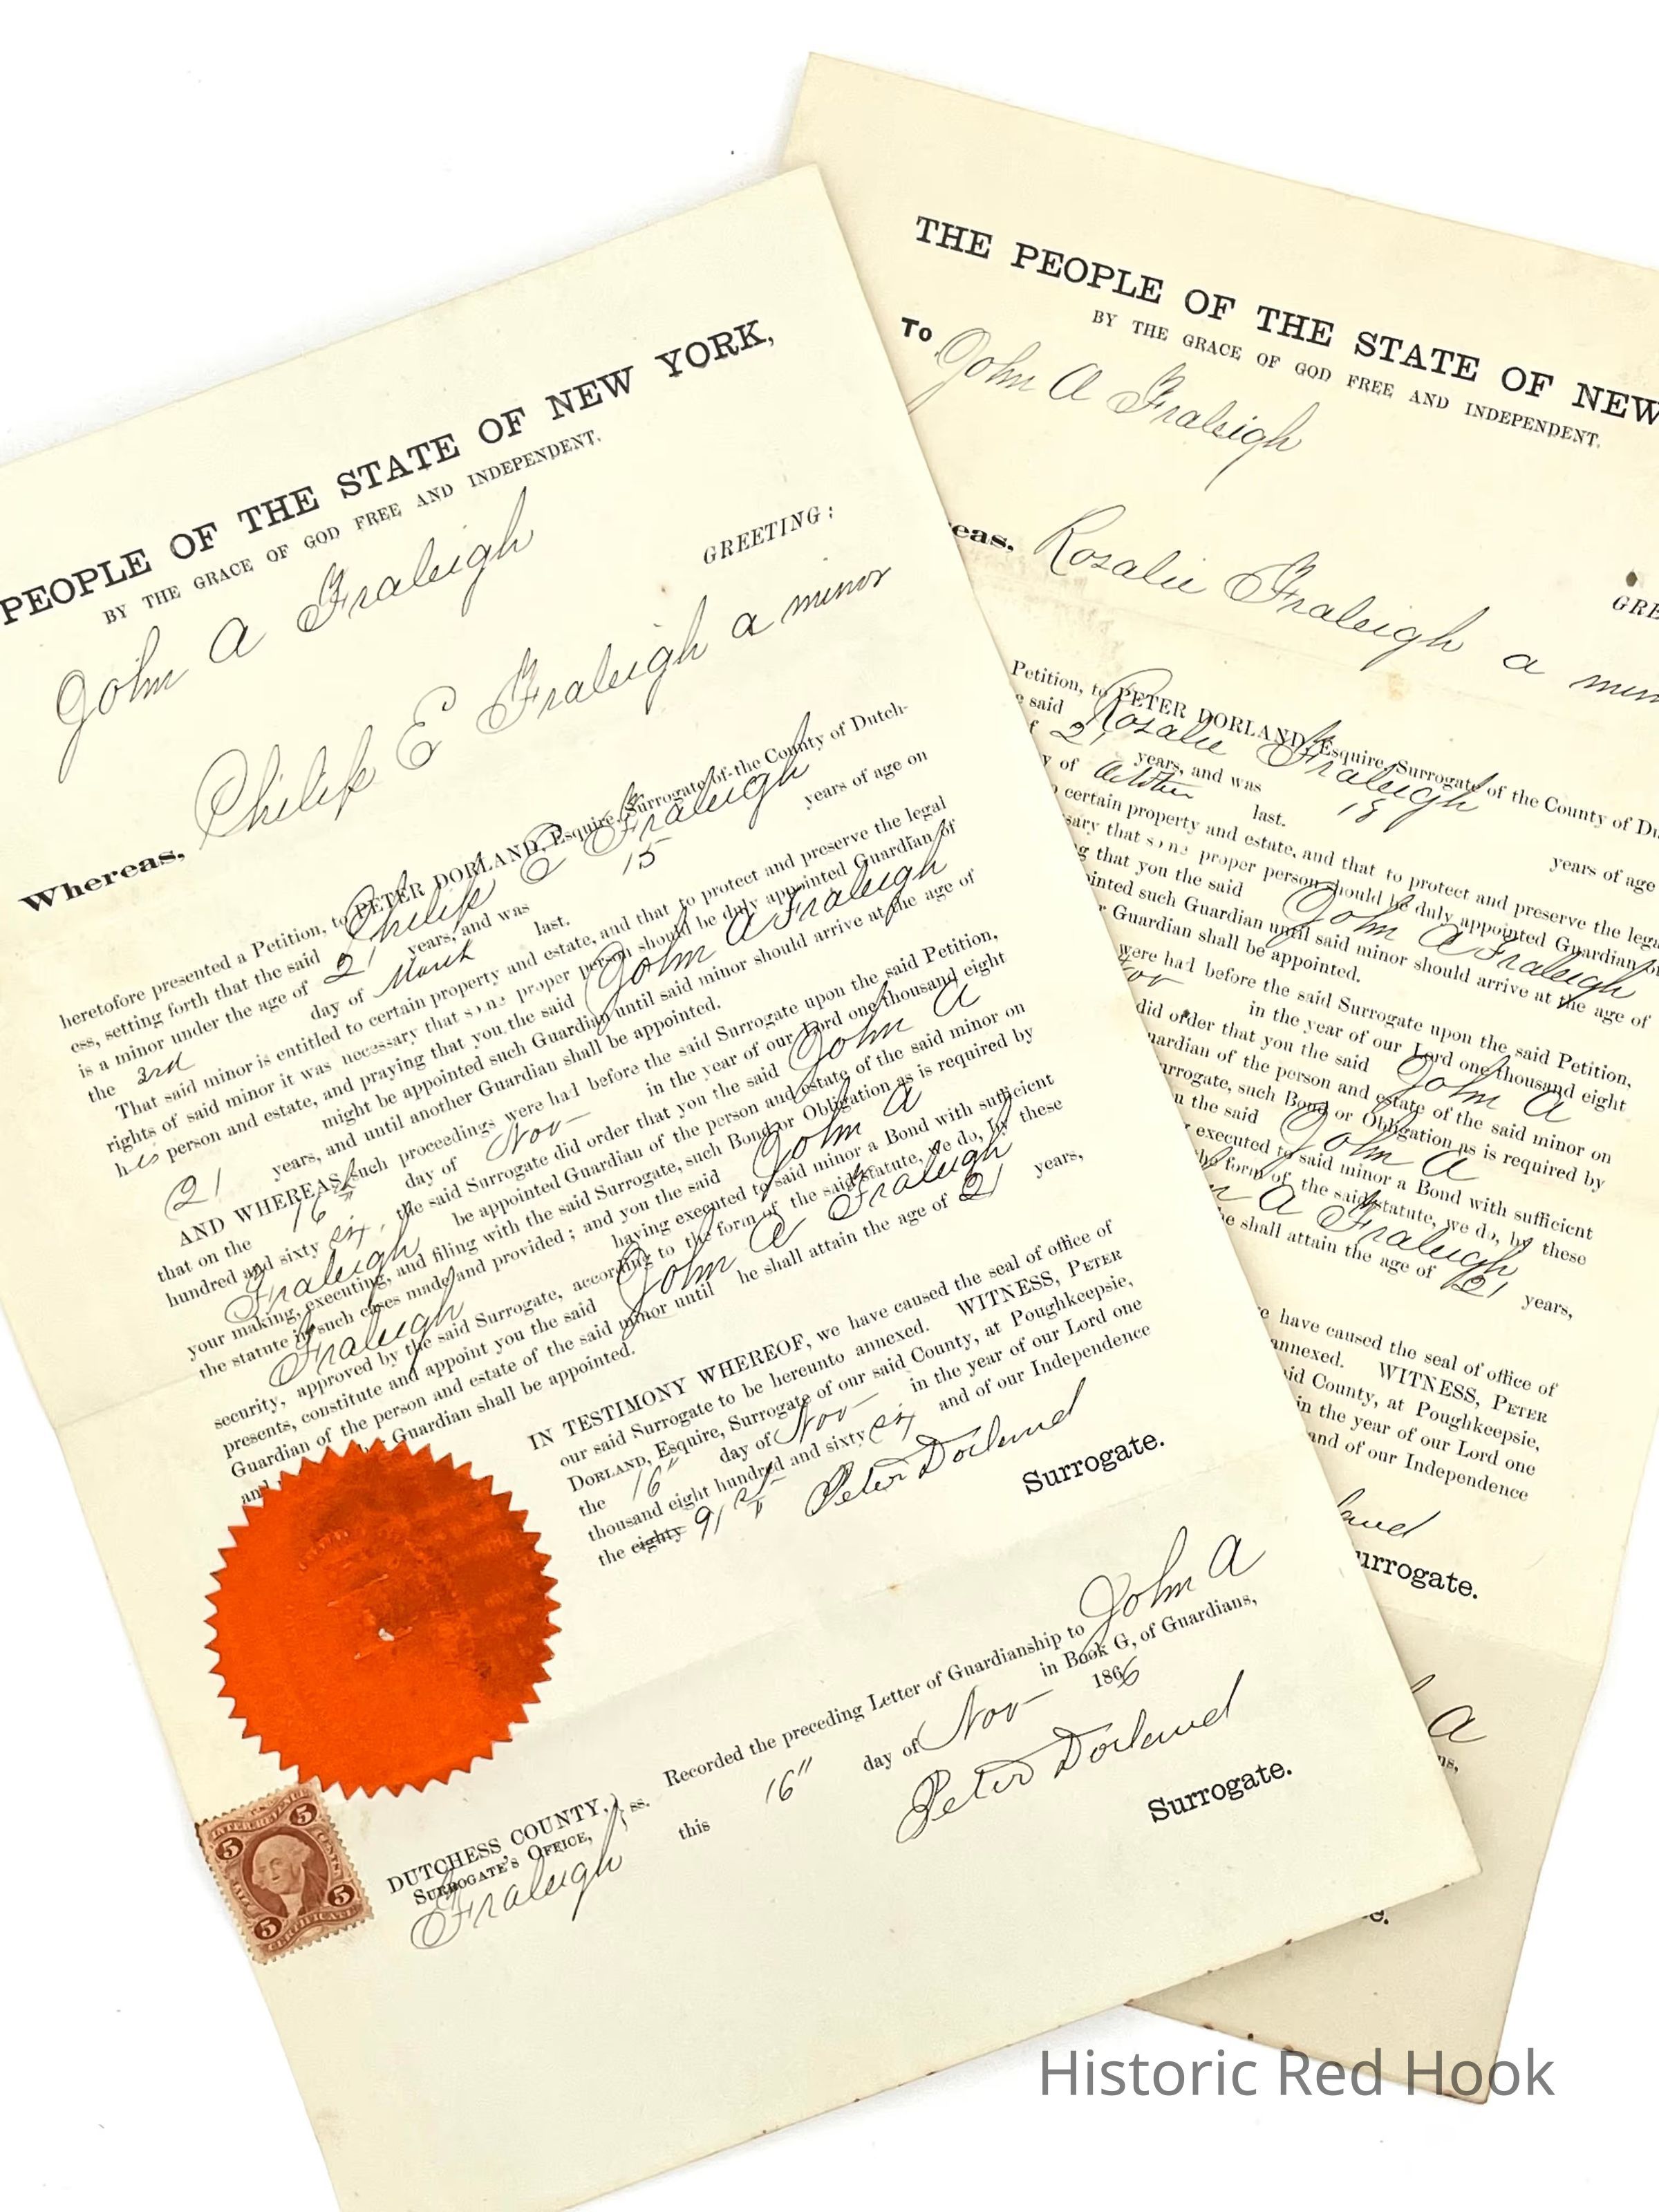 PEOPLE OF THE STATE OF NEW YORK,
BY THE GRACE OF GOD FREE AND INDEPENDENT.
John A Fraleigh
GREETING:
Whereas, Philip E Fraleigh a minor
heretofore presented a Petition, to PETER DORLAND, Esquire, Surrogate of the County of Dutch-
ess, setting forth that the said Philip E Fraleigh
is a minor under the age of 21 years, and was 15 years of age on
the 3rd day of March last.
That said minor is entitled to certain property and estate, and that to protect and preserve the legal
rights of said minor it was necessary that some proper person should be duly appointed Guardian of
his person and estate, and praying that you the said John A Fraleigh
might be appointed such Guardian until said minor should arrive at the age of
21 years, and until another Guardian shall be appointed.
AND WHEREAS, such proceedings were had before the said Surrogate upon the said Petition,
that on the 16" day of Nov in the year of our Lord one thousand eight
hundred and sixty six, the said Surrogate did order that you the said John A
Fraleigh be appointed Guardian of the person and estate of the said minor on
your making, executing, and filing with the said Surrogate, such Bond or Obligation as is required by
the statute in such cases made and provided; and you the said John A
Fraleigh having executed to said minor a Bond with sufficient
security, approved by the said Surrogate, according to the form of the said statute, we do, by these
presents, constitute and appoint you the said John A Fraleigh
Guardian of the person and estate of the said minor until he shall attain the age of 21 years,
and Guardian shall be appointed.
IN TESTIMONY WHEREOF, we have caused the seal of office of
our said Surrogate to be hereunto annexed. WITNESS, PETER
DORLAND, Esquire, Surrogate of our said County, at Poughkeepsie,
the 16" day of Nov in the year of our Lord one
thousand eight hundred and sixty six and of our Independence
the eighty 91st
Peter Dorland
Surrogate.
DUTCHESS COUNTY,
SURROGATE'S OFFICE, ss. Recorded the preceding Letter of Guardianship to John A
Fraleigh in Book G, of Guardians,
this 16" day of Nov 1866
Peter Dorland
Surrogate.
INTER. REVENUE
5 5
5 5
CENTS.
CERTIFICATE
THE PEOPLE OF THE STATE OF NEW
BY THE GRACE OF GOD FREE AND INDEPENDENT.
To John A Fraleigh
GRE
eas, Rosalie Fraleigh a min
Petition, to PETER DORLAND, Esquire, Surrogate of the County of Du
said Rosalie Fraleigh
f 21 years, and was 18 years of age
y of last.
certain property and estate, and that to protect and preserve the lega
sary that some proper person should be duly appointed Guardian of
g that you the said John A Fraleigh
inted such Guardian until said minor should arrive at the age of
Guardian shall be appointed.
were had before the said Surrogate upon the said Petition,
ov in the year of our Lord one thousand eight
did order that you the said John A
uardian of the person and estate of the said minor on
urrogate, such Bond or Obligation as is required by
u the said John A
executed to said minor a Bond with sufficient
he form of the said statute, we do, by these
n A Fraleigh
he shall attain the age of 21 years,
e have caused the seal of office of
annexed. WITNESS, PETER
id County, at Poughkeepsie,
in the year of our Lord one
and of our Independence
land
urrogate.
A
ns,
e.
Historic Red Hook